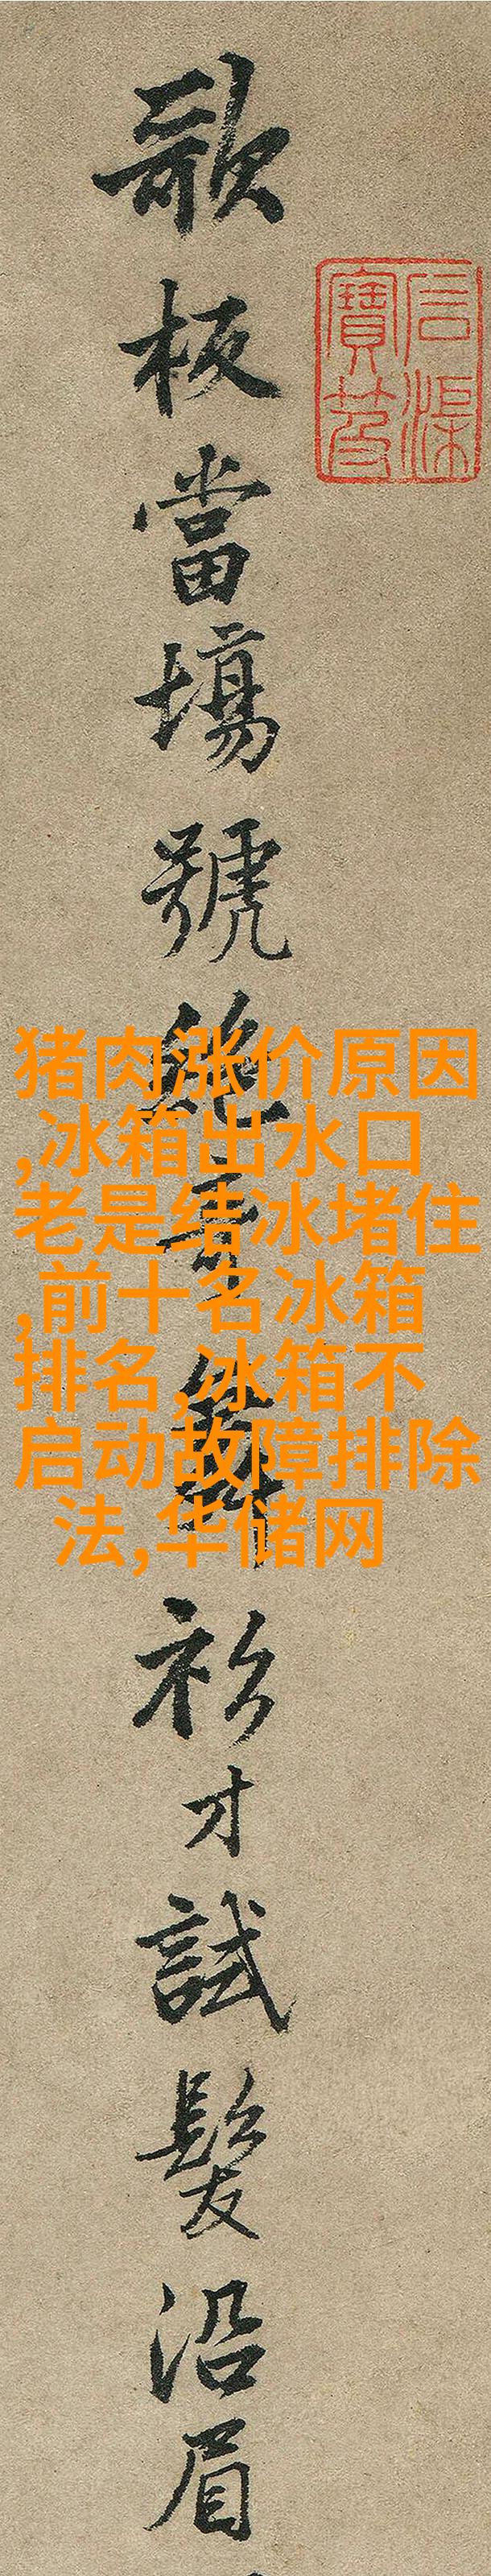 歌板當塲號絶奇舞衫才試髮沿眉
猪肉涨价原因
,冰箱出水口
老是结冰堵住
,前十名冰箱
排名,冰箱不
启动故障排除
法,华储网